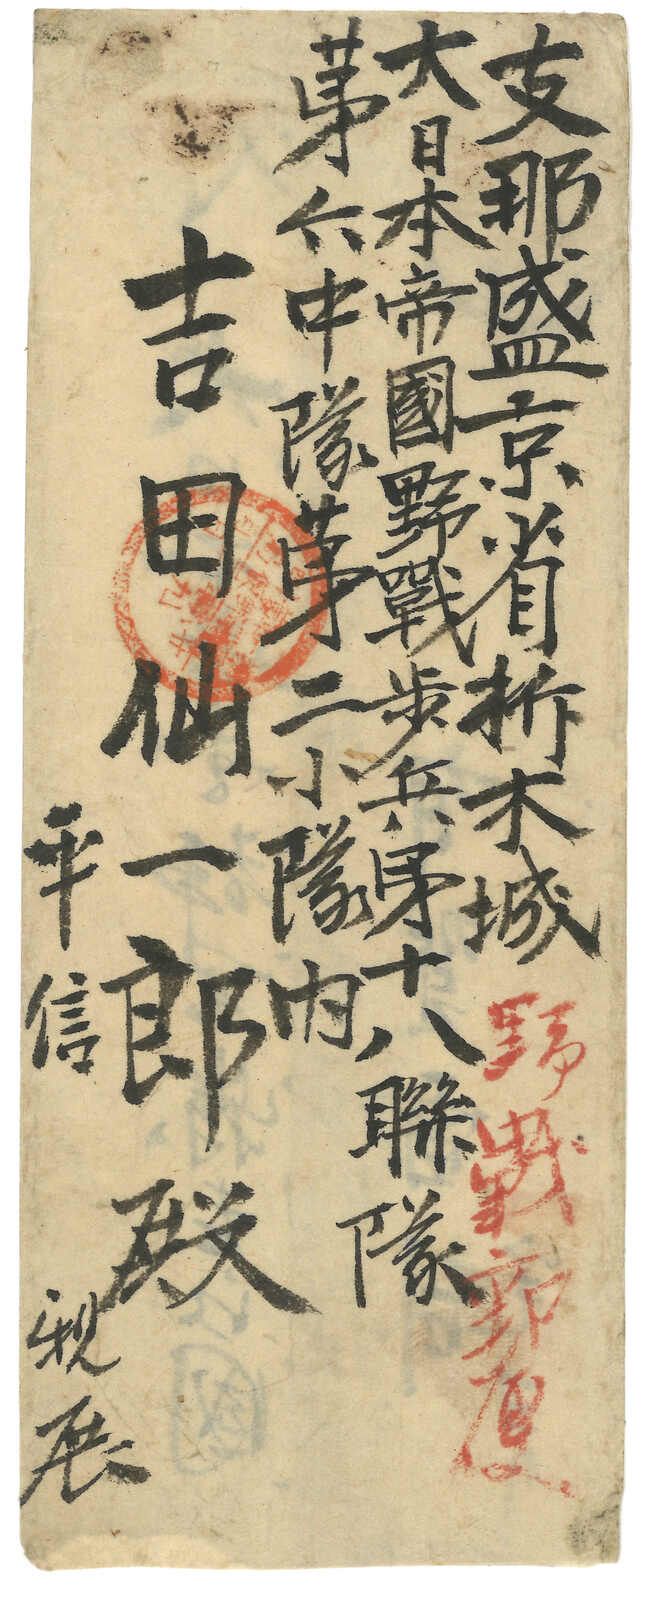 支那盛京省析木城
野戰郵便
大日本帝國野戰歩兵第十八聯隊
第六中隊第二小隊内
吉田仙一郎殿
平信
親展